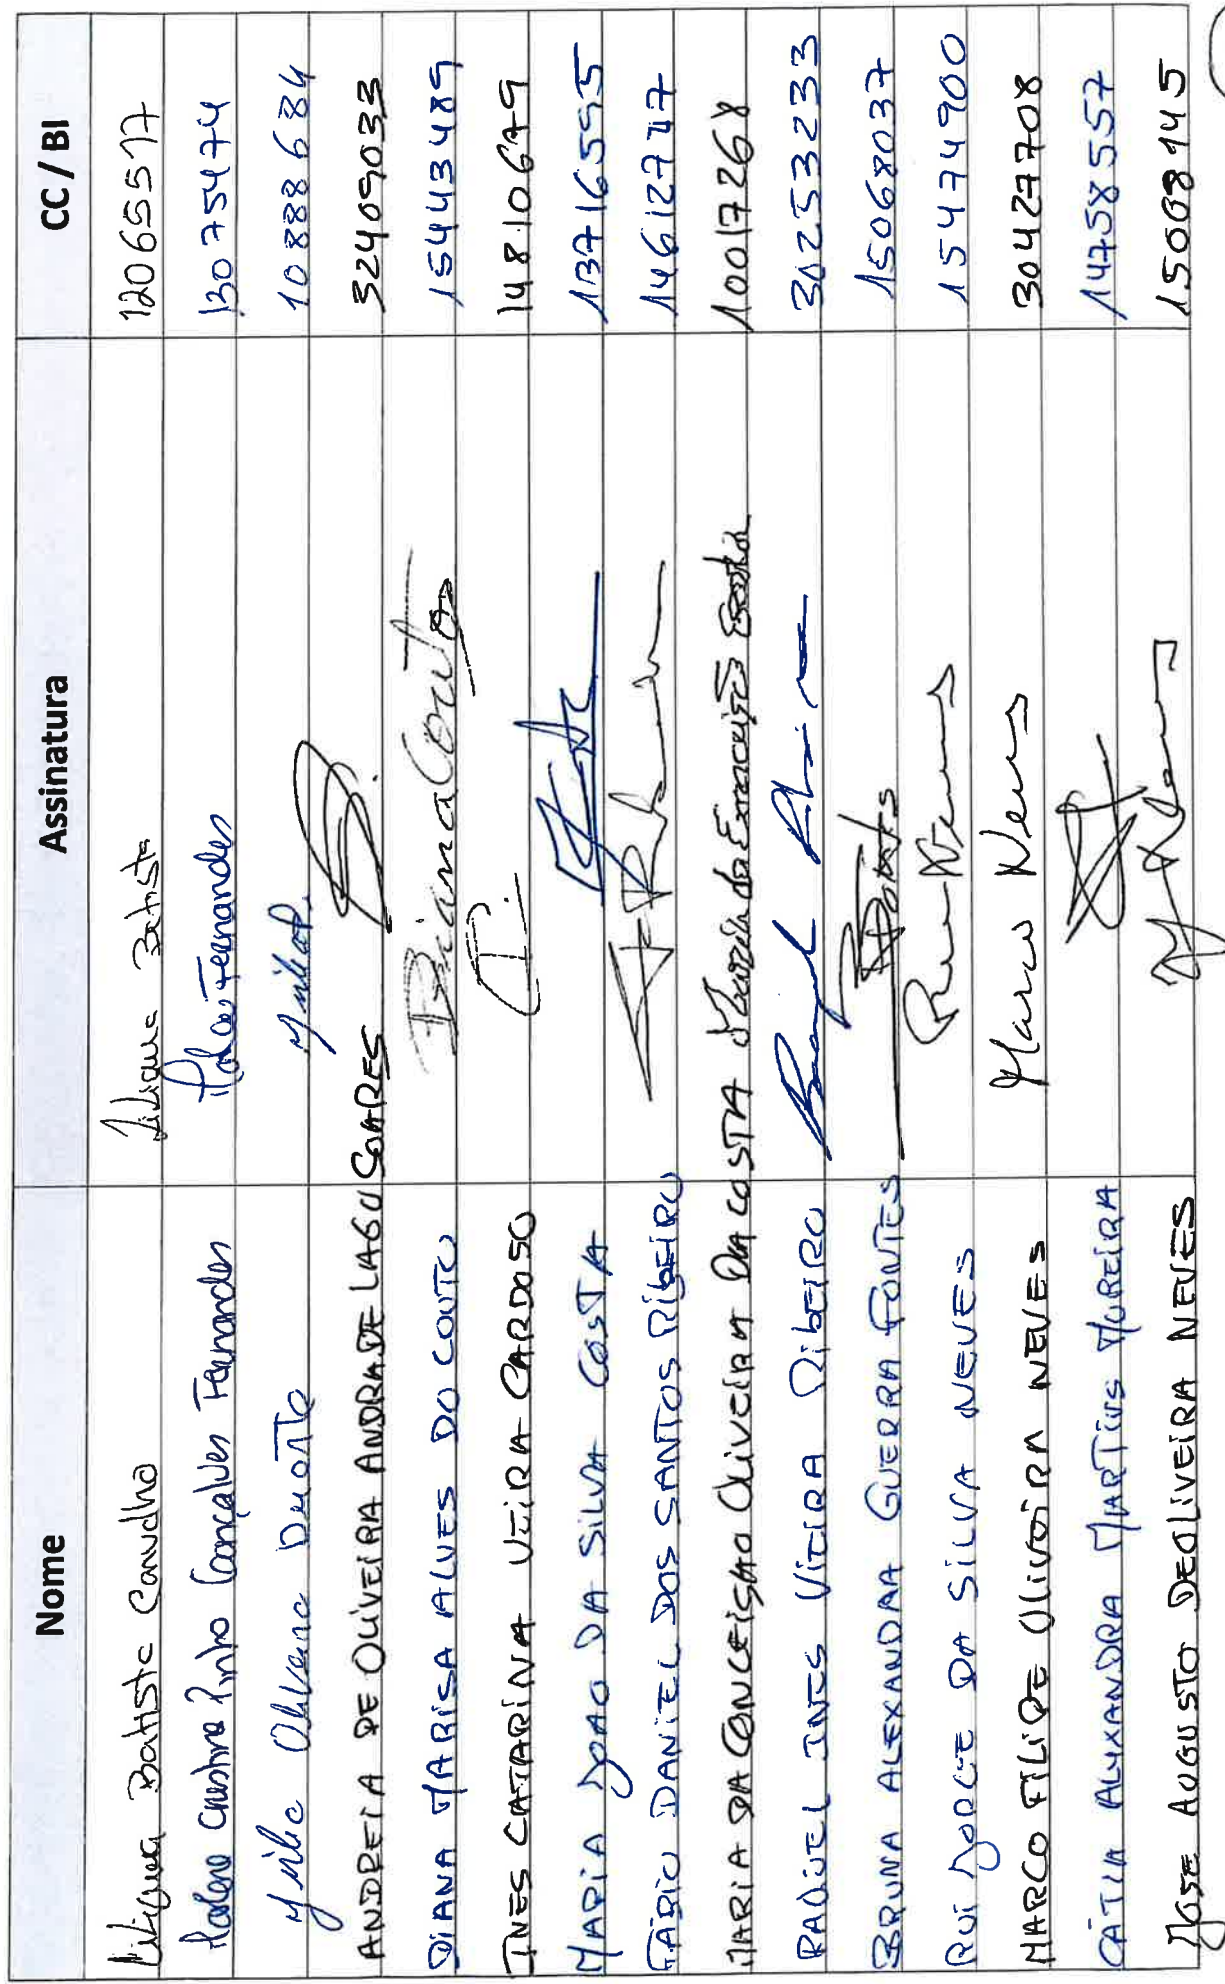 Nome Assinatura CC / BI
Liliana Batista Carvalho Liliana Batista 12065517
Cristina Pinho Gonçalves Fernandes Fernandes 13075474
Oliveira Duarte 10888684
ANDREIA DE OLIVEIRA ANDRADE LAGO SOARES 32409033
DIANA MARISA ALVES DO COUTO Diana Couto 15443489
INES CATARINA VEIRA CARDOSO 14810679
MARIA JOAO DA SILVA COSTA 13716595
FÁBIO DANIEL DOS SANTOS RibEIRO 14612747
MARIA DA CONCEIÇÃO OliVEIRA DA COSTA 10017268
RAQUEL INES VIEIRA RibEIRO 30253233
BRUNA ALEXANDRA GUERRA FONTES BFontes 15068037
RUI JORGE DA SILVA NEVES Rui Neves 15474900
MARCO FILIPE OliVEIRA NEVES Marco Neves 30427708
CÁTIA ALEXANDRA MARTINS MOREIRA 14758557
JOSE AUGUSTO DE OLIVEIRA NEVES 15008145